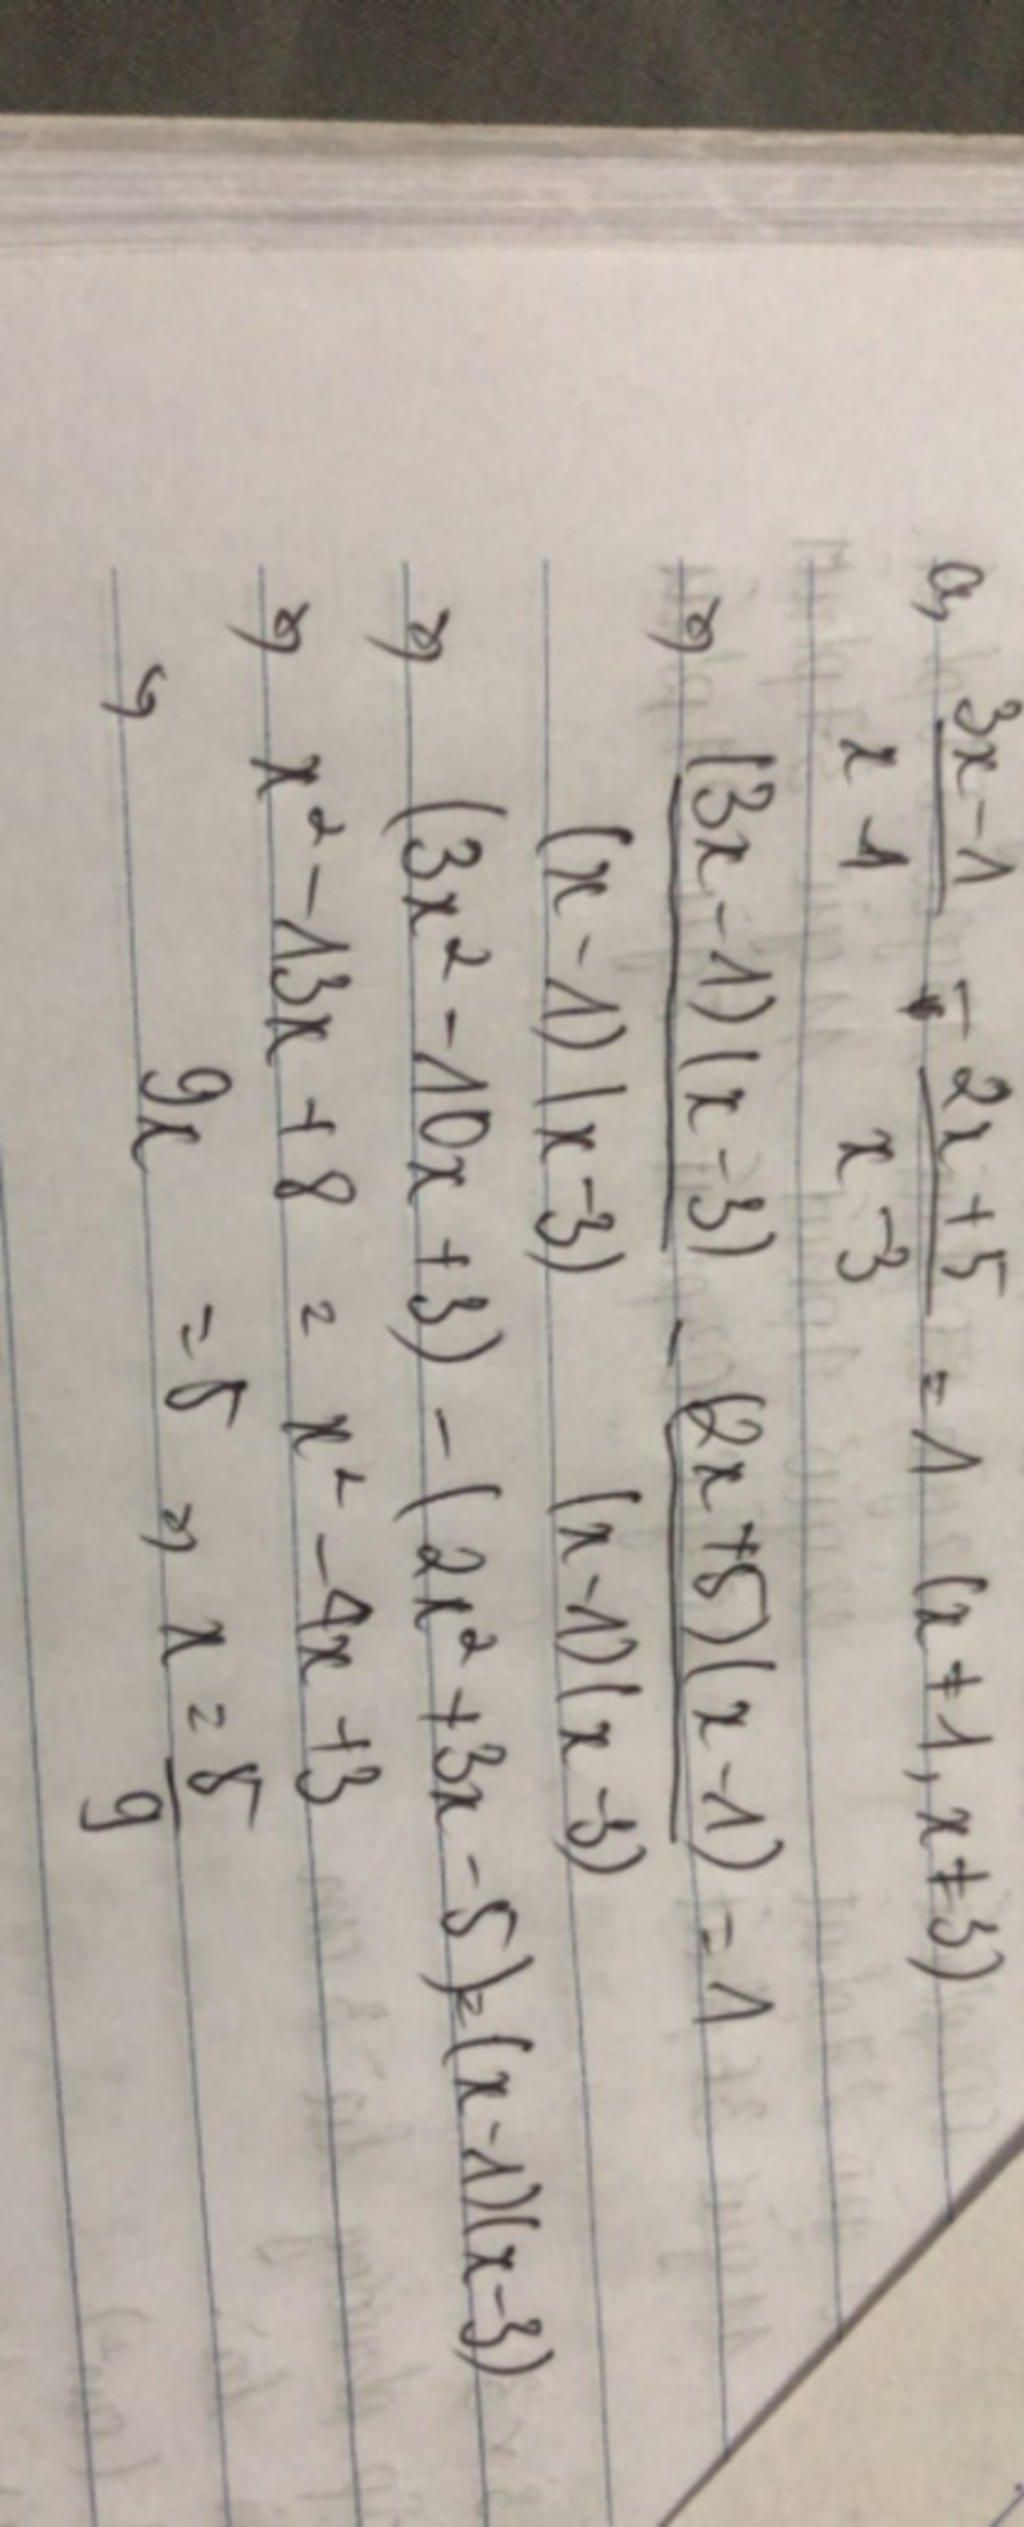 a, 3x-1 / x-1 - 2x+5 / x-3 = 1 (x≠1, x≠3)
=> (3x-1)(x-3) / (x-1)(x-3) - (2x+5)(x-1) / (x-1)(x-3) = 1
=> (3x² -10x +3) - (2x² +3x -5) = (x-1)(x-3)
=> x² -13x +8 = x² -4x +3
=> 9x = 5 => x = 5/9